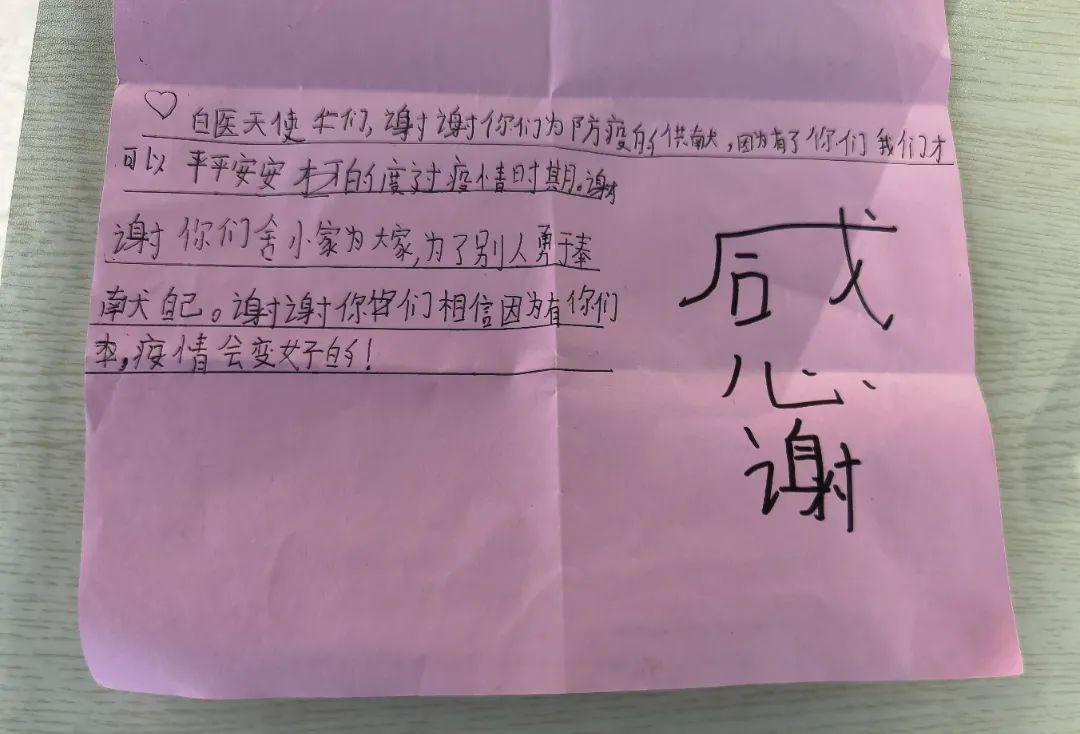 白医天使们,谢谢你们为防疫的供献,因为有了你们我们才
可以平平安安的度过疫情时期。谢
谢你们舍小家为大家,为了别人勇于奉
献自己。谢谢你们相信因为有你们
在,疫情会变好的!
感
谢